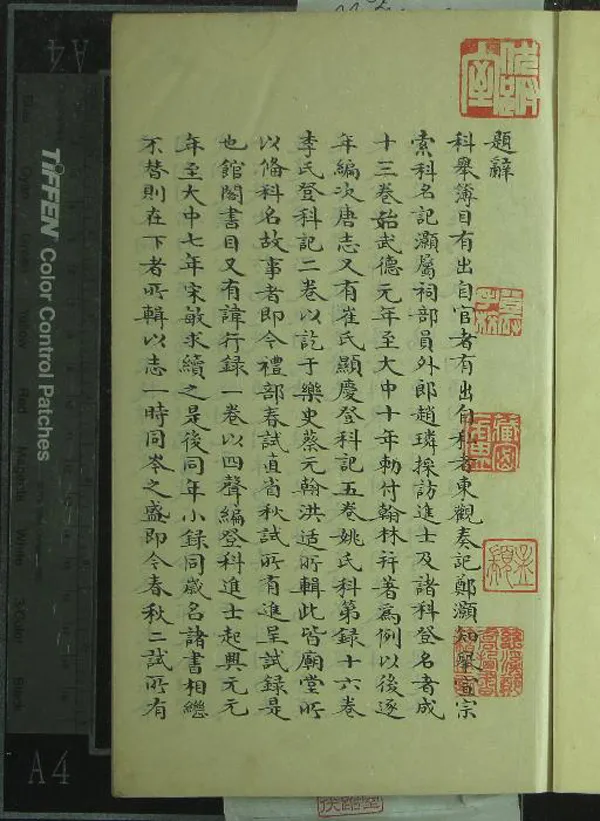 題辭
科舉簿目有出自官者有出自私者東觀奏記鄭灝知舉宣宗
索科名記灝屬祠部員外郎趙璘採訪進士及諸科登名者成
十三卷始武德元年至大中十年勅付翰林並著為例以後逐
年編次唐志又有崔氏顯慶登科記五卷姚氏科第録十六卷
李氏登科記二卷以訖于樂史蔡元翰洪适所輯此皆廟堂所
以俻科名故事者即今禮部春試直省秋試所有進呈試録是
也館閣書目又有諱行録一卷以四聲編登科進士起興元元
年至大中七年宋敏求續之是後同年小録同歲名諸書相繼
不替則在下者所輯以志一時同岑之盛即今春秋二試所有
TIFFEN Color Control Patches
A4
A4